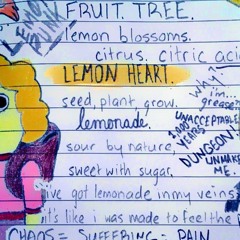 LEMON
FRUIT. TREE.
lemon blossoms.
citrus. citric acid
LEMON HEART.
seed, plant, grow.
lemonade.
sour by nature
sweet with sugar.
ive got lemonade in my veins
it's like i was made to feel the
CHAOS = SUFFERING = PAIN
WHY?
i'm...
grease?
UNACCEPTABLE!
1,000
YEARS
DUNGEON!
UNMAKE
ME.